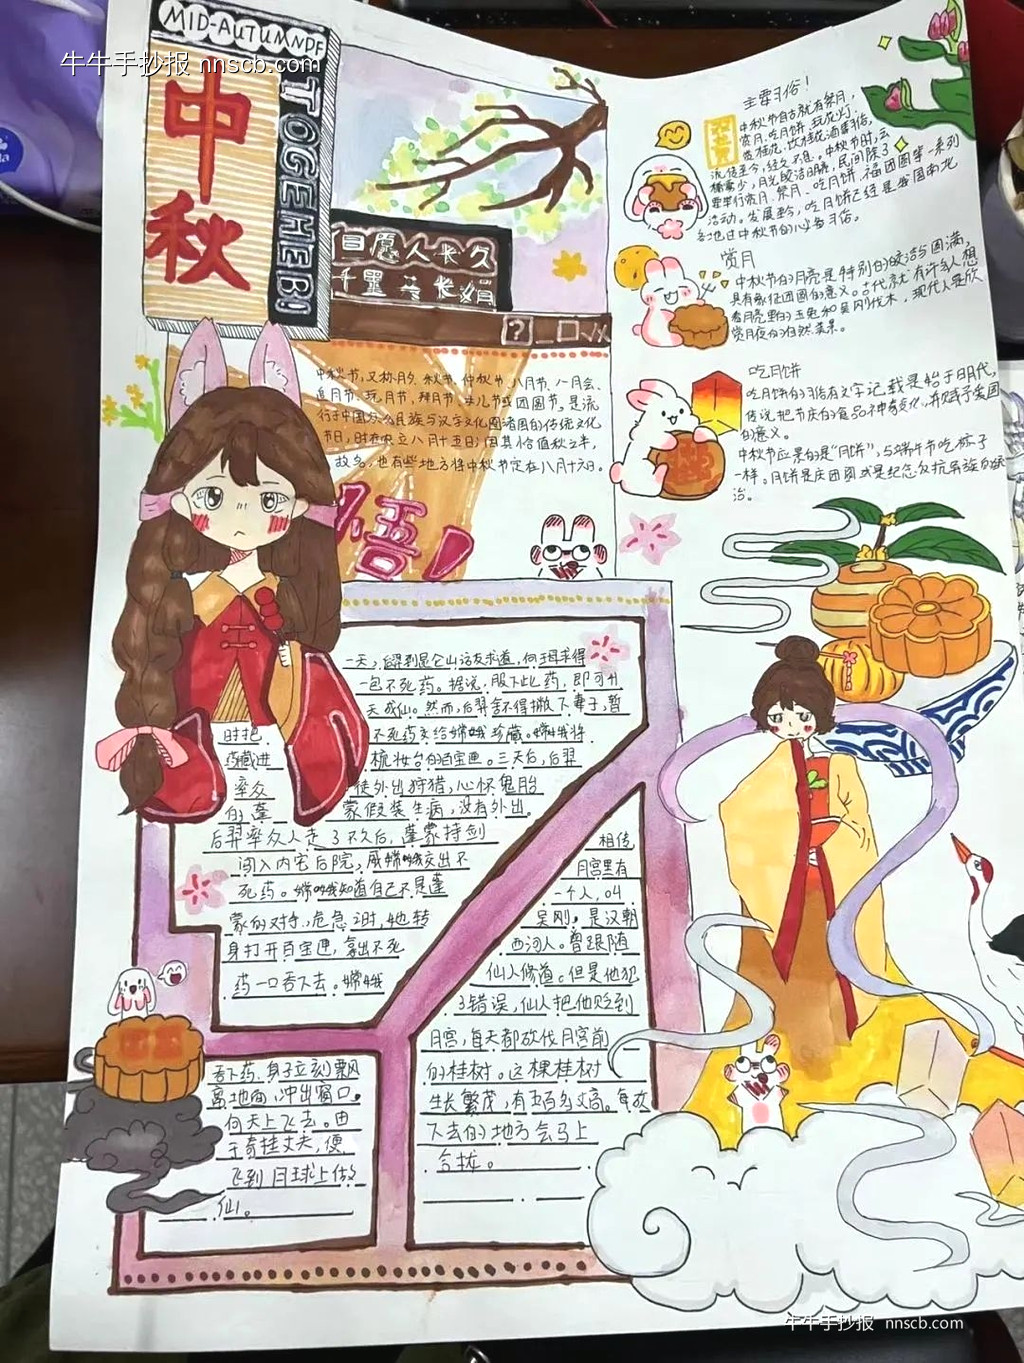 MID-AUTUMNDF
牛牛手抄报 nnscb.com
中秋
TOGEHEB!
但愿人长久
千里共长娟
?_口√x
中秋节,又称月夕、秋节、仲秋节、八月节、八月会、
追月节、玩月节、拜月节、女儿节或团圆节。是流
行于中国众多民族与汉字文化圈诸国的传统文化
节日,时在农历八月十五日;因其恰值秋之半,
故名,也有些地方将中秋节定在八月十六日。
悟!
主要习俗!
中秋节自古就有祭月,
赏月、吃月饼、玩花灯、
赏桂花、饮桂花酒等习俗,
流传至今,经久不息。中秋节时,云
稀雾少,月光皎洁明亮,民间除了
要举行赏月、祭月、吃月饼、福团圆等一系列
活动。发展至今,吃月饼已经是我国南北
各地过中秋节的必备习俗。
赏月
中秋节的月亮是特别的皎洁与圆满,
具有象征团圆的意义。古代就有许多人想
看月亮里的玉兔和吴刚伐木,现代人喜欣
赏月夜的自然美景。
吃月饼
吃月饼的习俗有文字记载是始于明代,
传说把节庆的食品
的意义。
中秋节应景的是“月饼”,与端午节吃粽子
一样。月饼是庆团圆或是纪念反抗异族的统
治。
一天,后羿到昆仑山访友求道,向王母求得
一包不死药。据说,服下此药,即可升
天成仙。然而,后羿舍不得撇下妻子,暂
时把不死药交给嫦娥珍藏。嫦娥将
药藏进梳妆台的百宝匣。三天后,后羿
率众徒外出狩猎,心怀鬼胎
的蓬蒙假装生病,没有外出。
后羿率众人走了不久后,蓬蒙持剑
闯入内宅后院,威嫦娥交出不
死药。嫦娥知道自己不是蓬
蒙的对手,危急之时,她转
身打开百宝匣,拿出不死
药一口吞下去。嫦娥
吞下药,身子立刻飘
离地面,冲出窗口。
向天上飞去。由
于牵挂丈夫,便
飞到月球上做
仙。
相传
月宫里有
一个人,叫
吴刚。是汉朝
西河人。曾跟随
仙人修道。但是他犯
了错误,仙人把他贬到
月宫,每天都砍伐月宫前
的桂树。这棵桂树
生长繁茂,有五百多丈高。每次
下去的地方会马上
合拢。
牛牛手抄报 nnscb.com